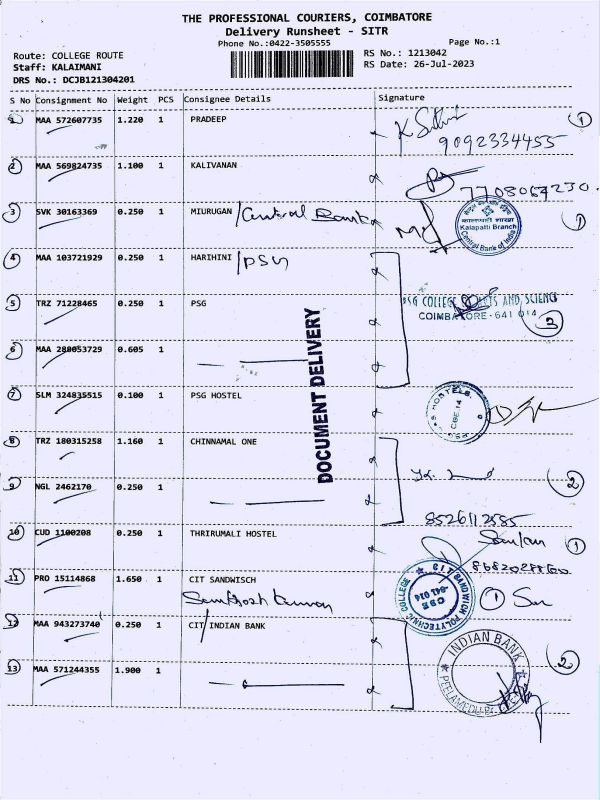 THE PROFESSIONAL COURIERS, COIMBATORE
Delivery Runsheet - SITR
Phone No.:0422-3505555 Page No.:1
Route: COLLEGE ROUTE RS No.: 1213042
Staff: KALAIMANI RS Date: 26-Jul-2023
DRS No.: DCJB121304201
S No Consignment No Weight PCS Consignee Details Signature
1 MAA 572607735 1.220 1 PRADEEP 1
9092334455
2 MAA 569824735 1.100 1 KALIVANAN
7708064230.
3 SVK 30163369 0.250 1 MIURUGAN /Central Bank 1
कालापट्टी शाखा
Kalapatti Branch
Central Bank of India
4 MAA 103721929 0.250 1 HARIHINI /PSG
5 TRZ 71228465 0.250 1 PSG
PSG COLLEGE OF ARTS AND SCIENCE
COIMBATORE - 641 014 3
6 MAA 280053729 0.605 1
DOCUMENT DELIVERY
7 SLM 324835515 0.100 1 PSG HOSTEL
HOSTELS
CBE.14
8 TRZ 180315258 1.160 1 CHINNAMAL ONE
9 NGL 2462170 0.250 1 2
8526112585
10 CUD 1100208 0.250 1 THRIRUMALI HOSTEL 1
11 PRO 15114868 1.650 1 CIT SANDWISCH
Santhosh Kumar
CIT SANDWICH POLYTECHNIC COLLEGE
CBE
-641 014
1
12 MAA 943273740 0.250 1 CIT/INDIAN BANK
INDIAN BANK 2
13 MAA 571244355 1.900 1